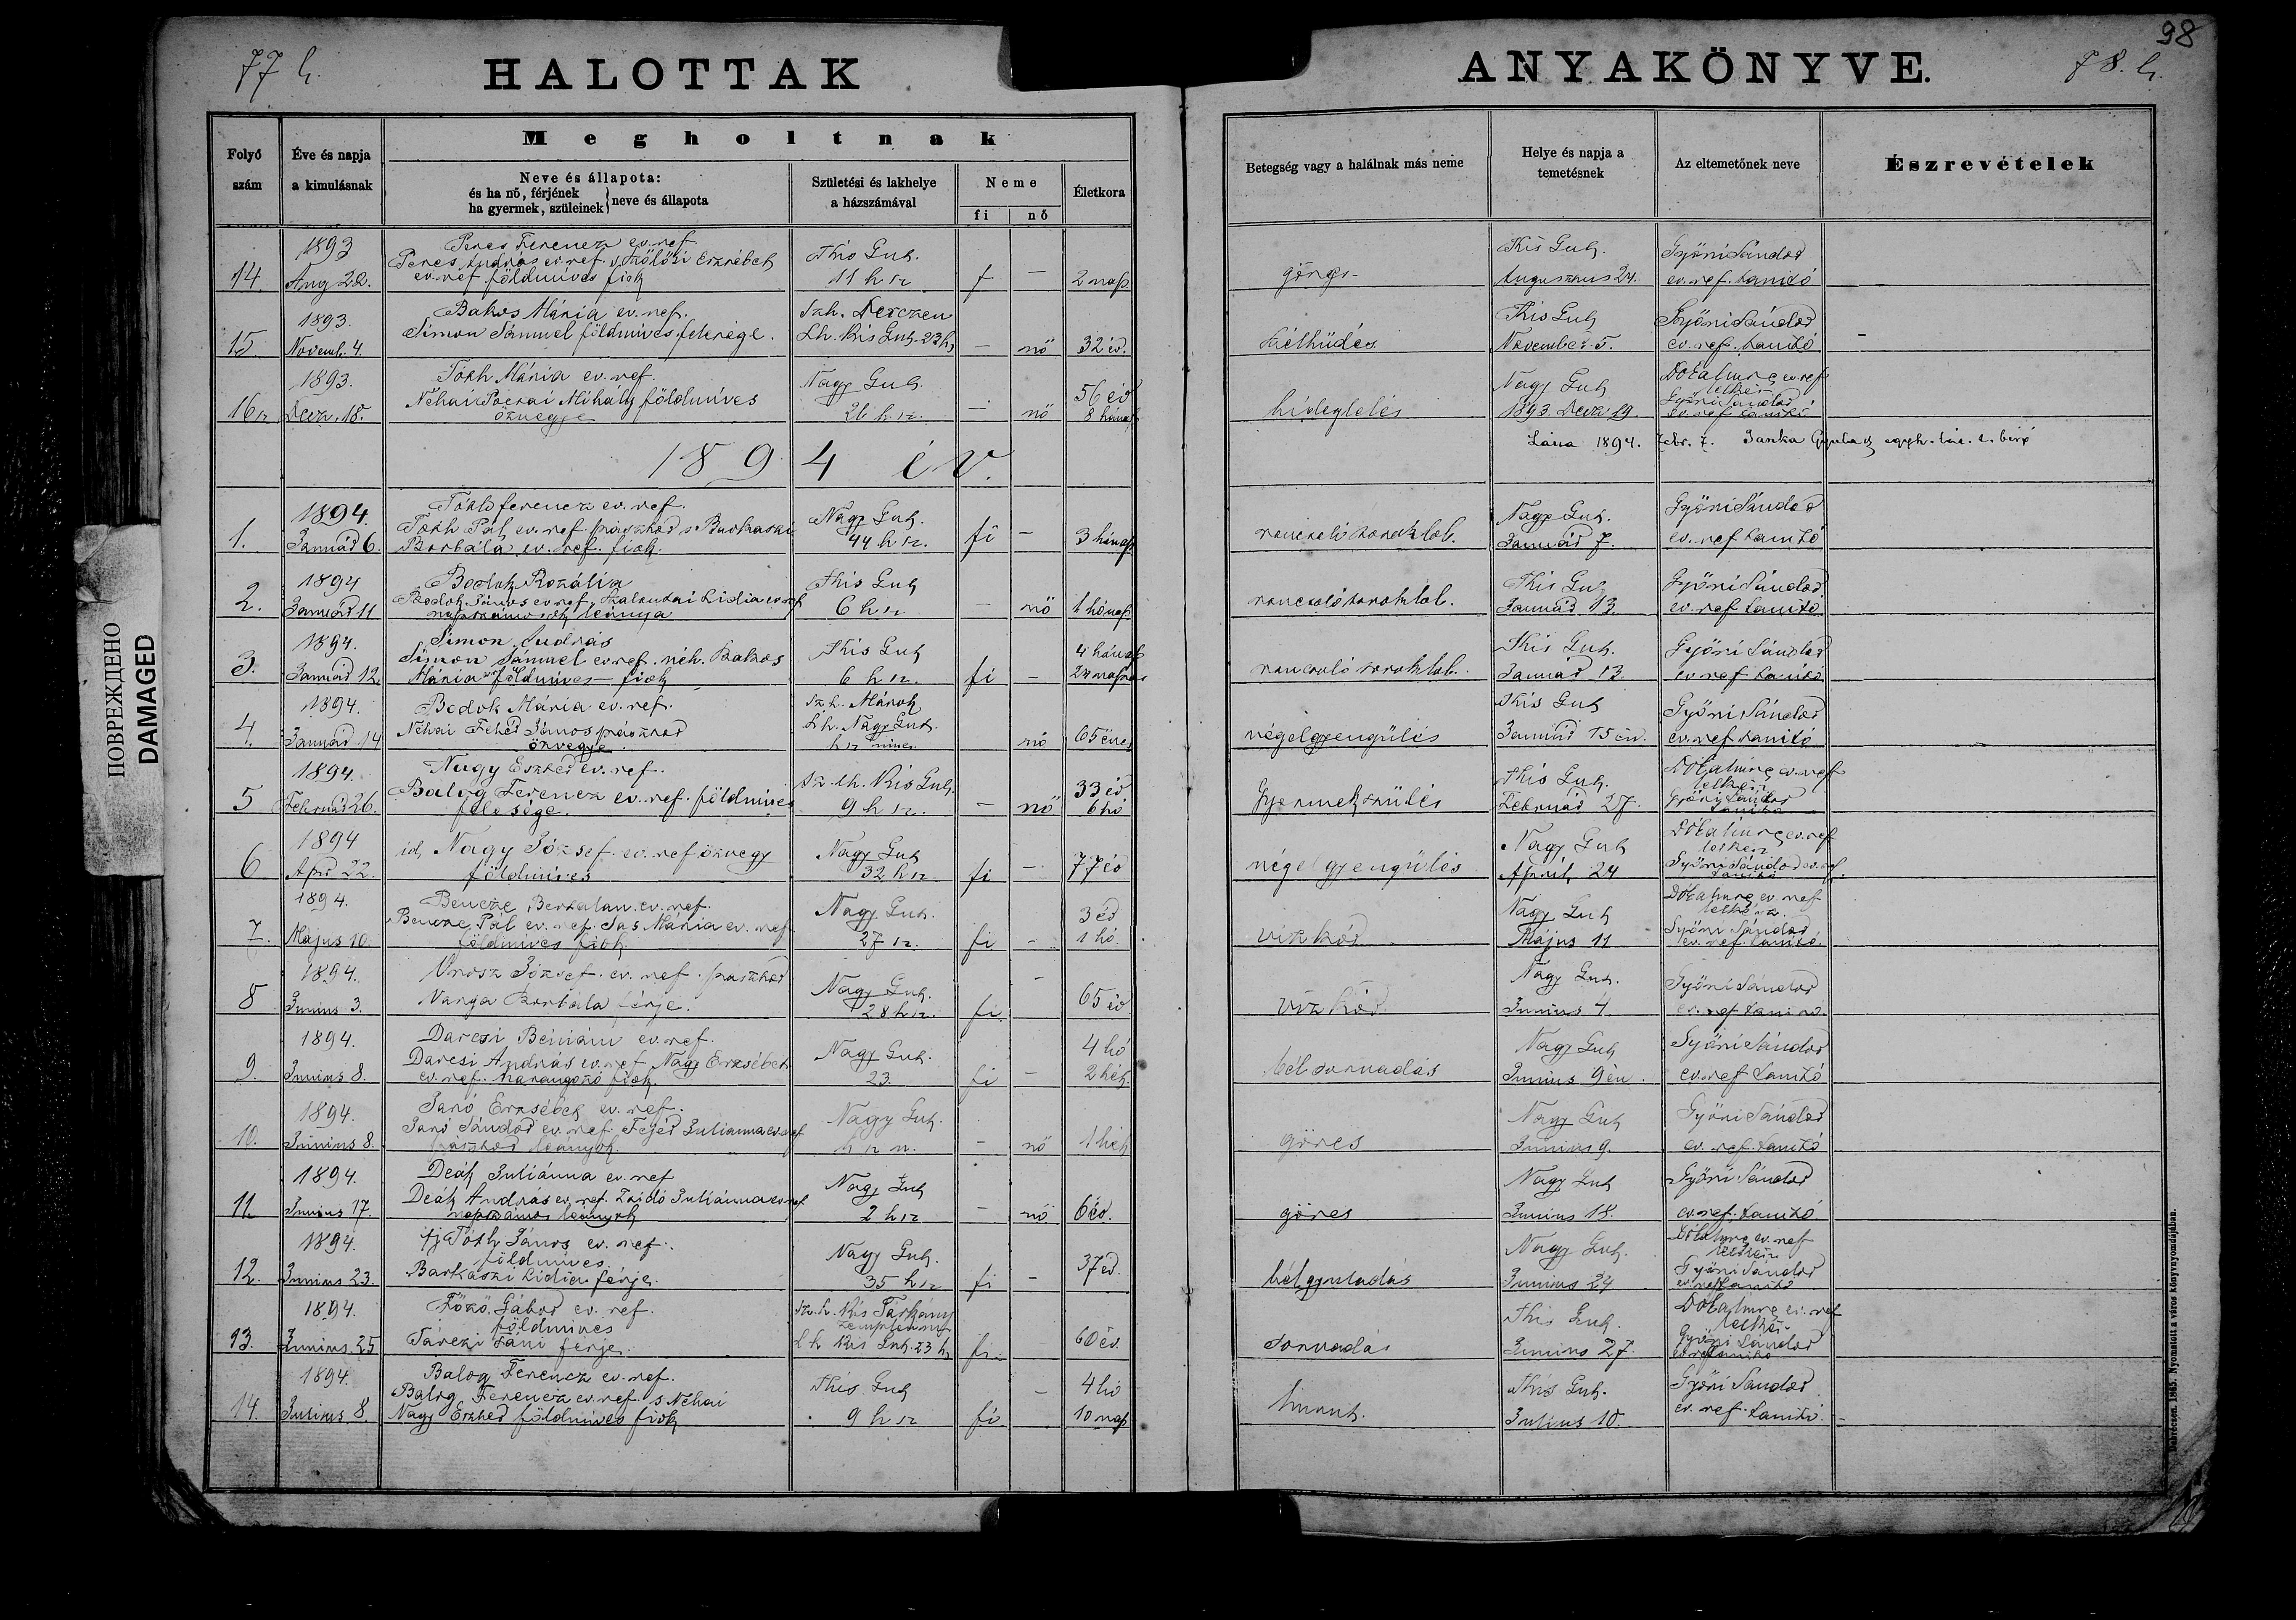 98
77 l.
HALOTTAK
ANYAKÖNYVE.
78. l.
Folyó szám
Éve és napja a kimulásnak
Megholtnak
Neve és állapota:
és ha nő, férjének
ha gyermek, szüleinek
neve és állapota
Születési és lakhelye
a házszámával
Neme
fi
nő
Életkora
Betegség vagy a halálnak más neme
Helye és napja a
temetésnek
Az eltemetőnek neve
Észrevételek
14. 1893 Aug 22.
Peres Ferencz ev. ref.
Peres András ev. ref. s Szőlősi Erzsébet
ev. ref földmíves fiok
Kis Gut.
11 h sz
f - 2 nap
görcs
Kis Gut
Augusztus 24.
Győri Sándor
ev. ref. tanitó
15. 1893. Novemb. 4.
Bakos Mária ev. ref.
Simon Sámuel földmíves felesége.
Szh. Derczen
Lh. Kis Gut. 23 h
- nő 32 év.
Szélhüdés
Kis Gut
November 5.
Győri Sándor
ev. ref. tanitó
16 1893. Decz. 18.
Tóth Mária ev. ref.
Néhai Mihály földmíves
özvegye
Nagy Gut.
26 h sz.
- nő 56 év
8 hónap
hideglelés
Nagy Gut
1893. Decz. 19.
ev. ref
lelkész
Győri Sándor
ev. ref tanitó
1894 év.
Láta 1894. Febr. 7. Janka Gyula
1. 1894. Január 6.
Tóth Ferencz ev. ref.
Tóth Pál ev. ref. pásztor s
Borbála ev. ref. fiok.
Nagy Gut.
44 h sz.
fi - 3 hónap
roncsoló toroklob.
Nagy Gut.
Január 7.
Győri Sándor
ev. ref tanitó
2. 1894 Január 11
Bodok Rozália
Bodok János ev. ref. Lidia ev. ref
napszámosok leánya
Kis Gut
6 h sz
- nő 1 hónap
roncsoló toroklob.
Kis Gut
Január 13.
Győri Sándor
ev. ref tanitó
3. 1894. Január 12.
Simon András
Simon Sámuel ev. ref. néh. Bakos
Mária földmíves fiok
Kis Gut
6 h sz.
fi - 4 hónap
24 napos
roncsoló toroklob.
Kis Gut.
Január 13.
Győri Sándor
ev. ref tanitó
4. 1894. Január 14
Bodok Mária ev. ref.
Néhai Fehér János pásztor
özvegye
Szh. Márok
Lh. Nagy Gut.
h sz nincs
nő 65 éves
végelgyengülés
Kis Gut
Január 15 én.
Győri Sándor
ev. ref tanitó
5 1894. Február 26.
Nagy Eszter ev. ref.
Balog Ferencz ev. ref. földmíves
felesége.
Sz. lh. Kis Gut.
9 h sz.
- nő 33 év
6 hó
Gyermekszülés
Kis Gut.
Február 27.
ev. ref
lelkész
Győri Sándor
tanitó
6 1894 Apr 22.
id. Nagy József ev. ref özvegy
földmíves
Nagy Gut
32 h sz
fi - 77 év
végelgyengülés
Nagy Gut
April 24
ev. ref
lelkész
Győri Sándor ev. ref.
tanitó
7. 1894. Május 10.
Bencze Bertalan ev. ref.
Bencze Pál ev. ref. Sas Mária ev. ref
földmíves fiok.
Nagy Gut.
27 sz.
fi - 3 év
1 hó.
vízkór
Nagy Gut
Május 11
ev. ref
lelkész.
Győri Sándor
ev. ref. tanitó.
8 1894. Junius 3.
Orosz József ev. ref. pásztor
Varga Borbála férje.
Nagy Gut.
28 h sz.
fi - 65 év
vízkór
Nagy Gut.
Junius 4.
Győri Sándor
ev. ref tanitó.
9. 1894. Junius 8.
Darcsi Béniám ev. ref.
Darcsi András ev. ref Nagy Erzsébet
ev. ref. harangozó fiok.
Nagy Gut.
23.
fi - 4 hó
2 hét.
bélsorvadás
Nagy Gut
Junius 9 én.
Győri Sándor
ev. ref tanitó
10. 1894. Junius 8.
Janó Erzsébet ev. ref.
Janó Sándor ev. ref. Fejér Julianna ev. ref
pásztor leányok.
Nagy Gut.
h sz n.
- nő 1 hét
görcs
Nagy Gut
Junius 9.
Győri Sándor
ev. ref. tanitó
11. 1894. Junius 17.
Deák Juliánna ev. ref
Deák András ev. ref. Juliánna ev. ref.
napszámos leányok
Nagy Gut
2 h sz
- nő 6 év.
görcs
Nagy Gut
Junius 18.
Győri Sándor
ev. ref. tanitó.
12. 1894. Junius 23.
ifj Tóth János ev. ref.
földmíves
Barkászi Lidia férje.
Nagy Gut.
35 h sz
fi - 37 év.
bélgyuladás
Nagy Gut.
Junius 24
ev. ref
lelkész
Győri Sándor
ev. ref tanitó
13. 1894. Junius 25
Gábor ev. ref.
földmíves
férje.
sz. h. Kis Tárkány
L h Kis Gut. 23 h
fi. 60 év.
sorvadás
Kis Gut.
Junius 27.
ev. ref
lelkész
Győri Sándor
ev. ref tanitó
14. 1894. Julius 8.
Balog Ferencz ev. ref.
Balog Ferencz ev. ref. s Néhai
Nagy Eszter földmíves fiok
Kis Gut
9 h sz
fi - 4 hó
10 nap
hurut.
Kis Gut.
Julius 10.
Győri Sándor
ev. ref. tanitó.
ПОВРЕЖДЕНО
DAMAGED
Debreczen. 1865. Nyomatott a város könyvnyomdájában.